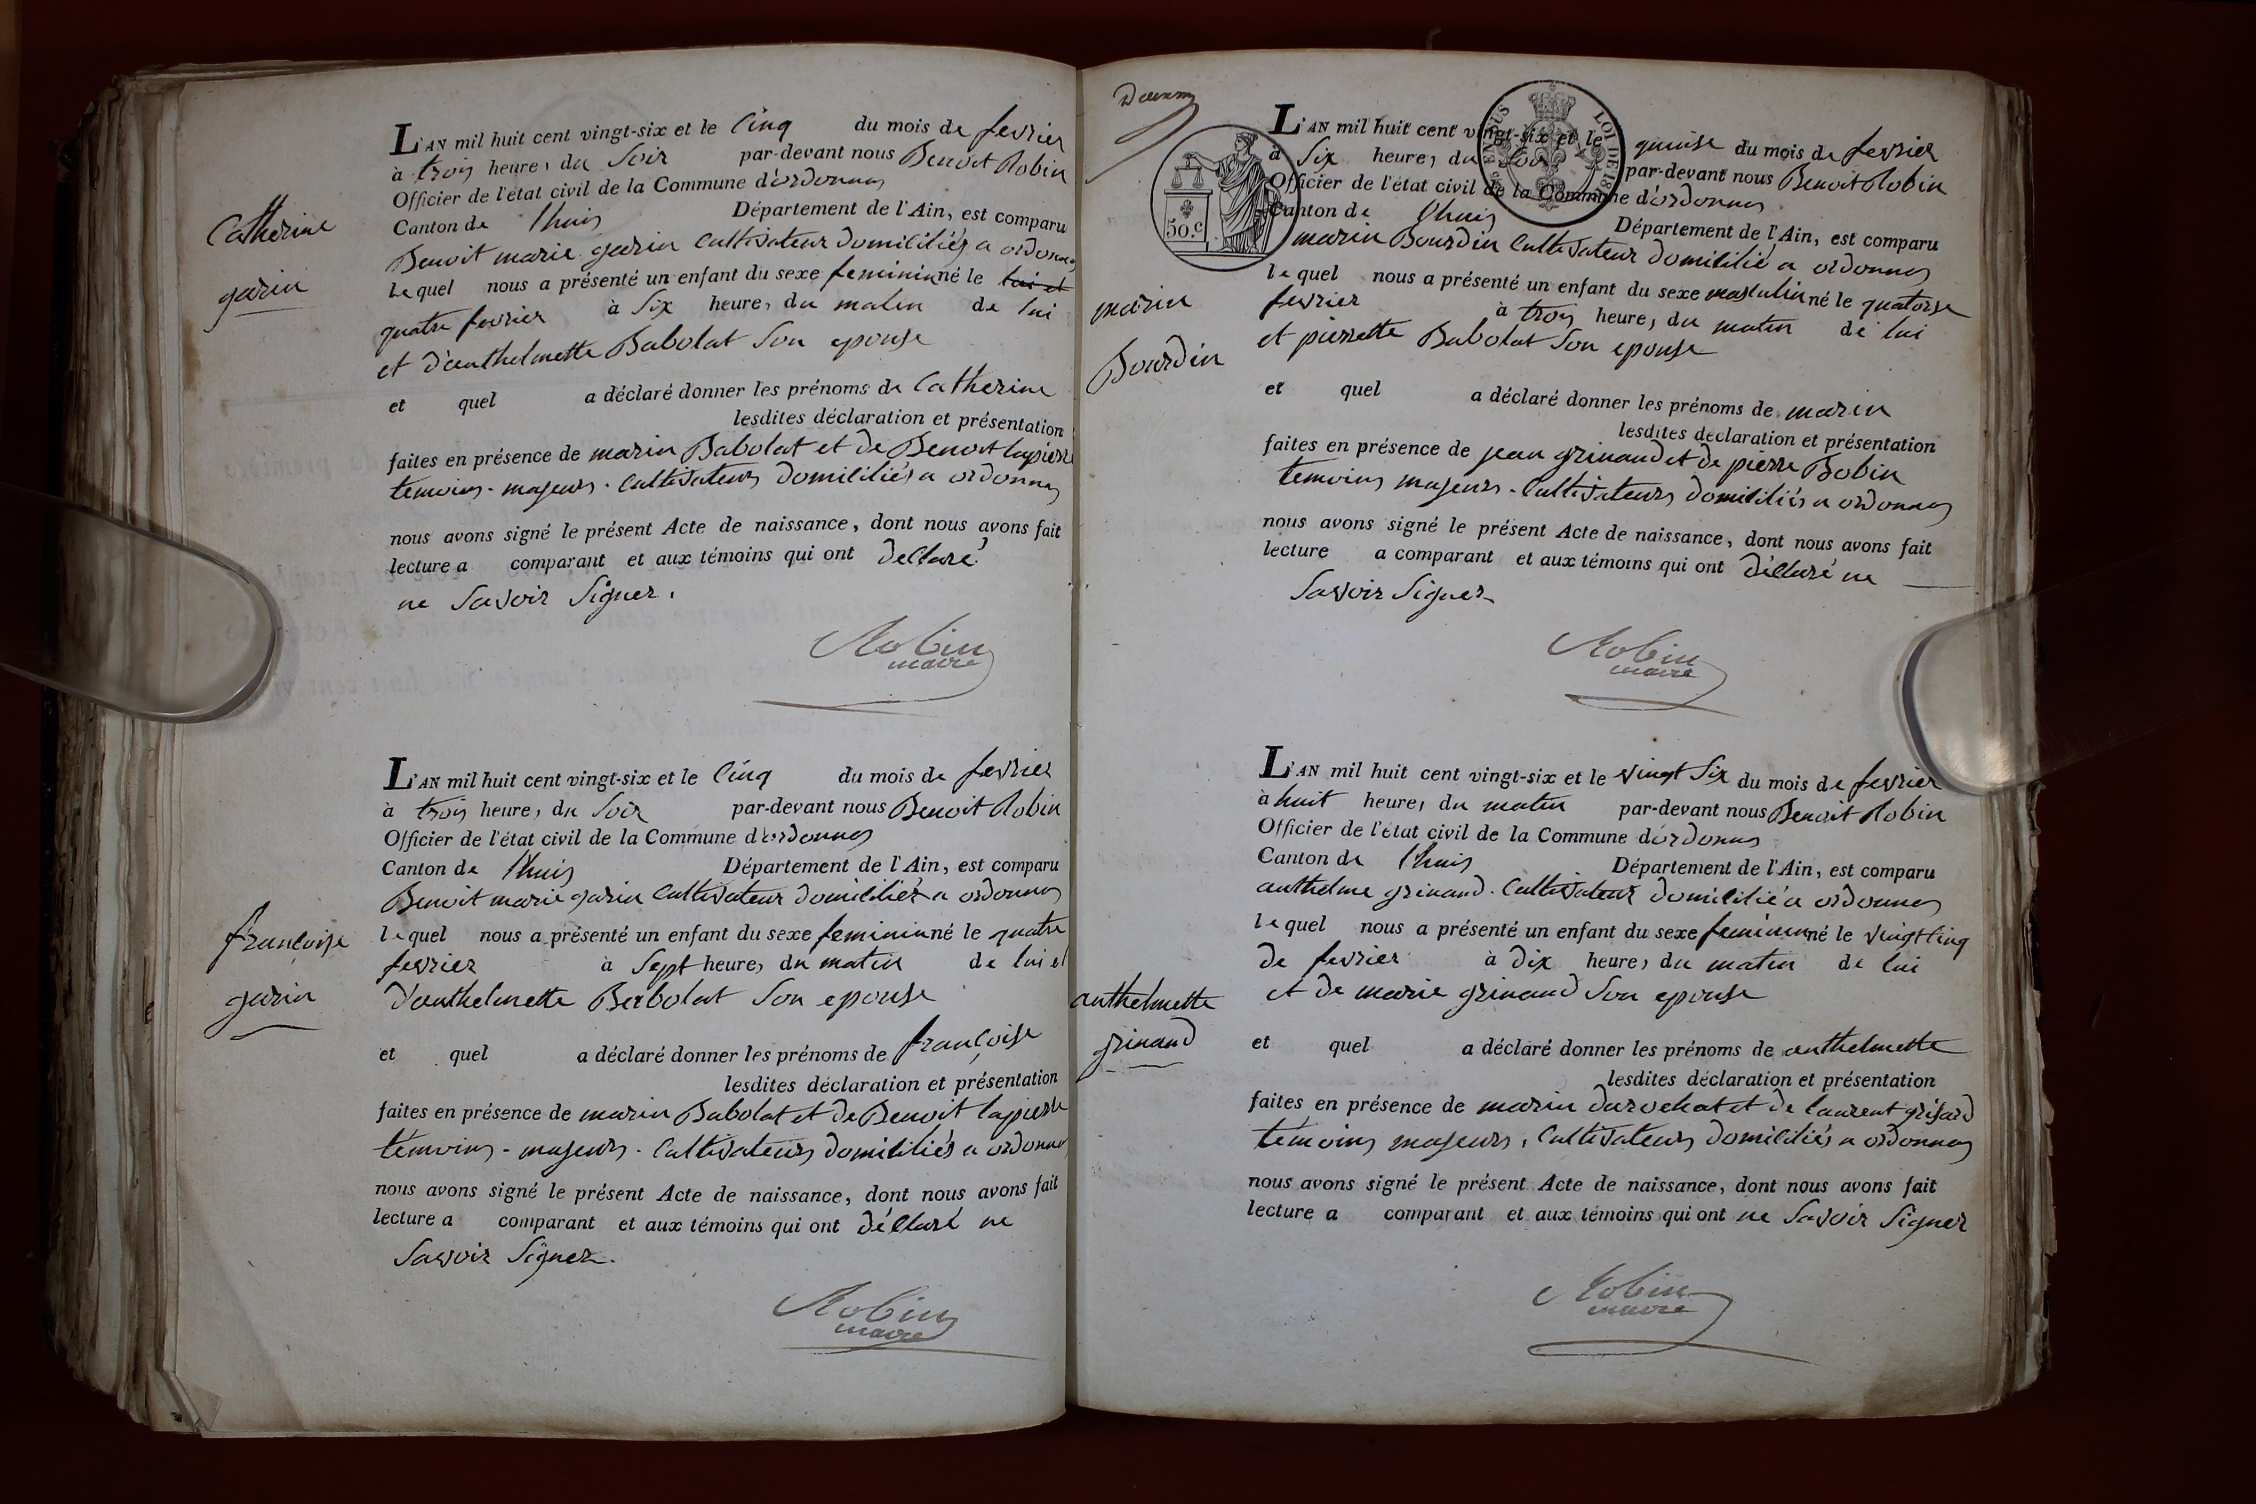 Catherine
garin
L'AN mil huit cent vingt-six et le Cinq du mois de fevrier
à trois heures du Soir par-devant nous Benoit Robin
Officier de l'état civil de la Commune d'ordonnas
Canton de lhuis Département de l'Ain, est comparu
Benoit marie garin Cultivateur domiciliés a ordonnas
lequel nous a présenté un enfant du sexe feminin né le lui et
quatre fevrier à Six heures du matin de lui
et d'anthelmette Babolat Son epouse
et quel a déclaré donner les prénoms de Catherine
lesdites déclaration et présentation
faites en présence de marin Babolat et de Benoit lapierre
temoins - majeurs - Cultivateurs domiciliés a ordonnas
nous avons signé le présent Acte de naissance, dont nous avons fait
lecture a comparant et aux témoins qui ont declaré
ne Savoir Signer.
Robin
maire
françoise
garin
L'AN mil huit cent vingt-six et le Cinq du mois de fevrier
à trois heures du Soir par-devant nous Benoit Robin
Officier de l'état civil de la Commune d'ordonnas
Canton de lhuis Département de l'Ain, est comparu
Benoit marie garin Cultivateur domiciliés a ordonnas
lequel nous a présenté un enfant du sexe feminin né le quatre
fevrier à Sept heures du matin de lui et
d'anthelmette Babolat Son epouse
et quel a déclaré donner les prénoms de françoise
lesdites déclaration et présentation
faites en présence de marin Babolat et de Benoit lapierre
témoins - majeurs - Cultivateurs domiciliés a ordonnas
nous avons signé le présent Acte de naissance, dont nous avons fait
lecture a comparant et aux témoins qui ont déclaré ne
Savoir Signer.
Robin
maire
50.c
LOI DE 18
marin
Bourdin
L'AN mil huit cent vingt-six et le quinse du mois de fevrier
à Six heures du Soir par-devant nous Benoit Robin
Officier de l'état civil de la Commune d'ordonnas
Canton de lhuis Département de l'Ain, est comparu
marin Bourdin Cultivateur domicilié a ordonnas
lequel nous a présenté un enfant du sexe masculin né le quatorse
fevrier à trois heures du matin de lui
et pierrette Babolat Son epouse
et quel a déclaré donner les prénoms de marin
lesdites déclaration et présentation
faites en présence de jean grinand et de pierre Bobin
temoins majeurs - Cultivateurs domiciliés a ordonnas
nous avons signé le présent Acte de naissance, dont nous avons fait
lecture a comparant et aux témoins qui ont déclaré ne
Savoir Signer
Robin
maire
anthelmette
grinand
L'AN mil huit cent vingt-six et le vingt Six du mois de fevrier
à huit heures du matin par-devant nous Benoit Robin
Officier de l'état civil de la Commune d'ordonnas
Canton de lhuis Département de l'Ain, est comparu
anthelme grinand Cultivateur domicilié a ordonnas
lequel nous a présenté un enfant du sexe feminin né le vingt Cinq
de fevrier à dix heures du matin de lui
et de marie grinand Son epouse
et quel a déclaré donner les prénoms de anthelmette
lesdites déclaration et présentation
faites en présence de marin durochat et de laurent grisard
témoins majeurs, Cultivateurs domiciliés a ordonnas
nous avons signé le présent Acte de naissance, dont nous avons fait
lecture a comparant et aux témoins qui ont ne Savoir Signer
Robin
maire